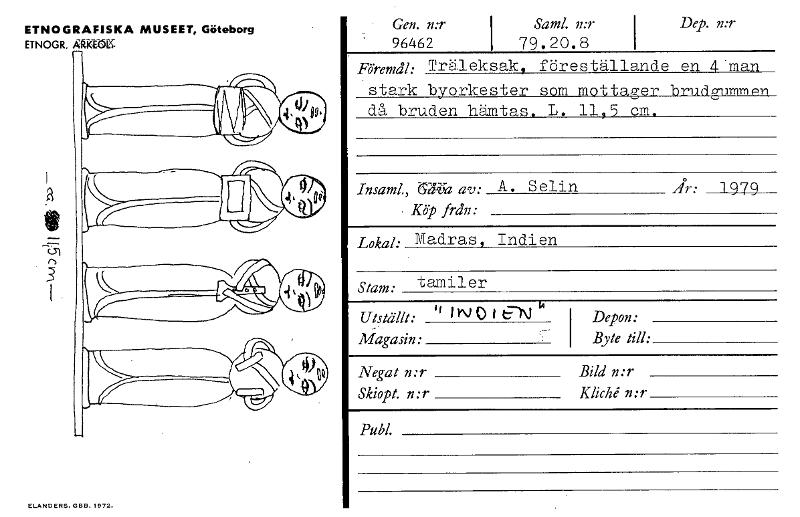 ETNOGRAFISKA MUSEET, Göteborg
ETNOGR. ARKEOL.
— ca. 11,5 cm —
ELANDERS, GBG. 1972.
Gen. n:r Saml. n:r Dep. n:r
96462 79.20.8
Föremål: Träleksak, föreställande en 4 man
stark byorkester som mottager brudgummen
då bruden hämtas. L. 11,5 cm.
Insaml., Gåva av: A. Selin År: 1979
Köp från:
Lokal: Madras, Indien
Stam: tamiler
Utställt: "INDIEN" Depon:
Magasin: Byte till:
Negat n:r Bild n:r
Skiopt. n:r Kliché n:r
Publ.